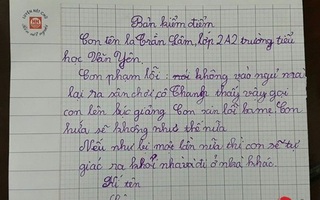 Bản kiểm điểm
Con tên là Trần Lâm, lớp 2A2 trường tiểu
học Văn Yên.
Con phạm lỗi: nơi không vào ngủ mà
lại ra sân chơi, cô Thanh thấy vậy gọi
con lên bục giảng. Con xin lỗi ba mẹ. Con
hứa sẽ không như thế nữa
Nếu như bị một lần nữa thì con sẽ tự
giác ra khỏi nhà và đi ở nhà khác.
Kí tên